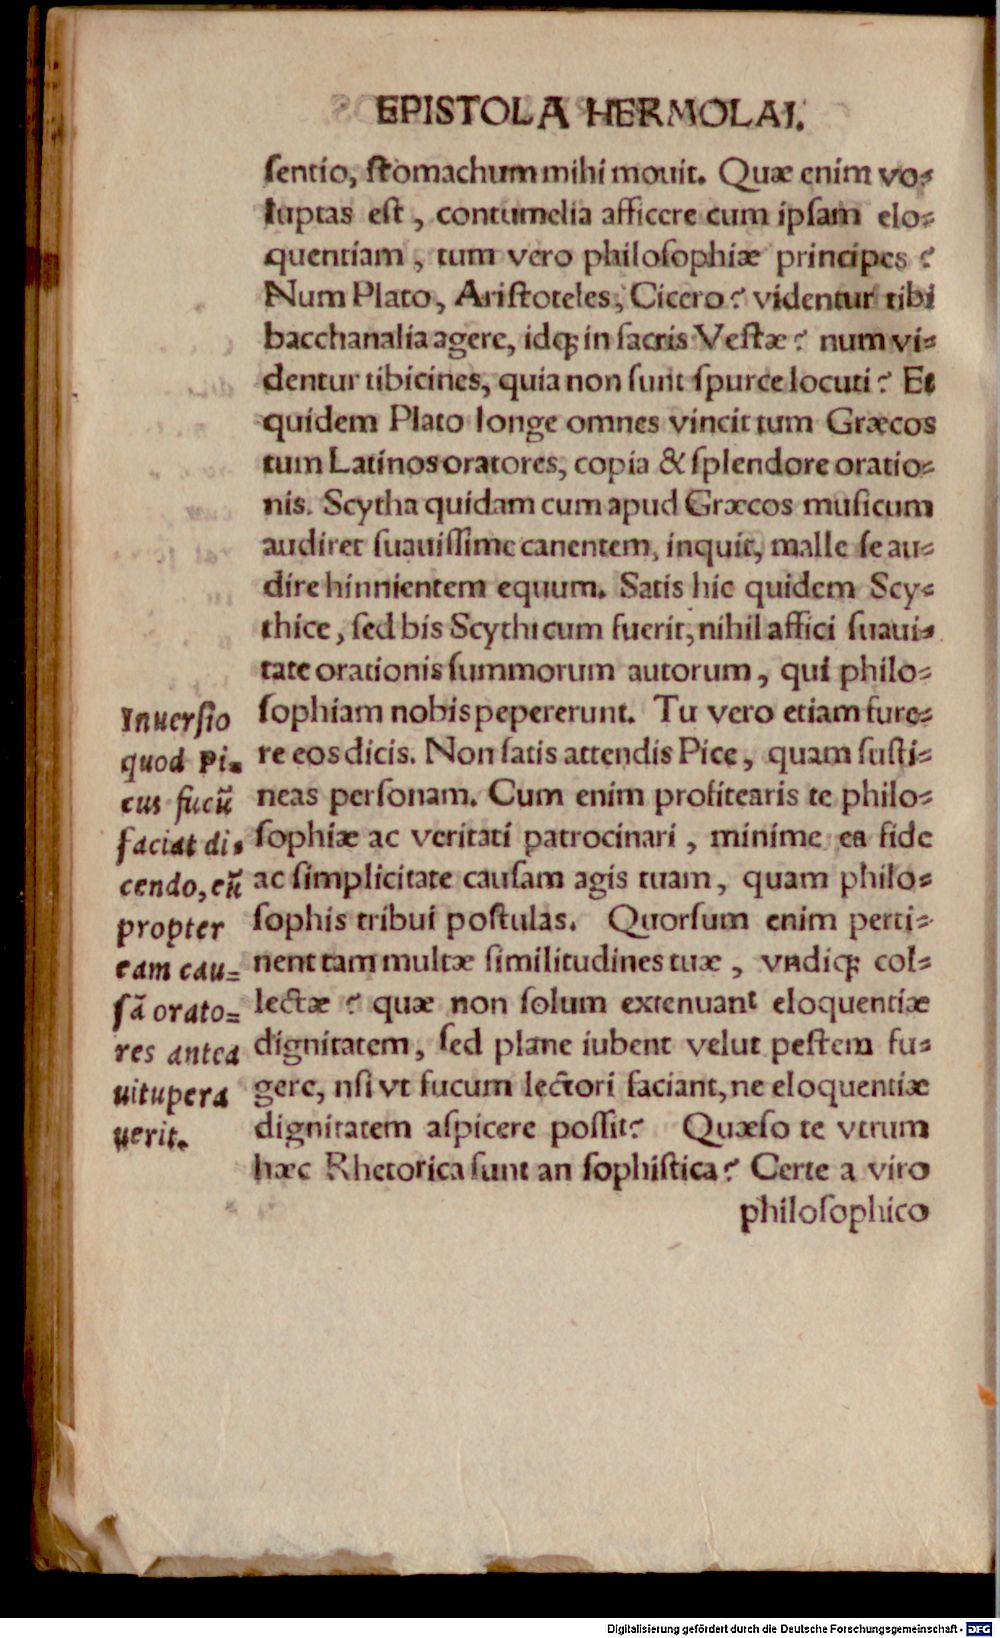 EPISTOLA HERMOLAI.
ſentio, ſtomachum mihi mouit. Quæ enim vo⸗
luptas eſt, contumelia afficere cum ipſam elo⸗
quentiam, tum vero philoſophiæ principes?
Num Plato, Ariſtoteles, Cicero? videntur tibi
bacchanalia agere, idq́; in ſacris Veſtæ? num vi⸗
dentur tibicines, quia non ſunt ſpurce locuti? Et
quidem Plato longe omnes vincit tum Græcos
tum Latinos oratores, copia & ſplendore oratio⸗
nis. Scytha quidam cum apud Græcos muſicum
audiret ſuauiſſime canentem, inquit, malle ſe au⸗
dire hinnientem equum. Satis hic quidem Scy⸗
thice, ſed bis Scythicum fuerit, nihil affici ſuaui⸗
tate orationis ſummorum autorum, qui philo⸗
ſophiam nobis pepererunt. Tu vero etiam fure⸗
re eos dicis. Non ſatis attendis Pice, quam ſuſti⸗
neas perſonam. Cum enim profitearis te philo⸗
ſophiæ ac veritati patrocinari, minime ea fide
ac ſimplicitate cauſam agis tuam, quam philo⸗
ſophis tribui poſtulas. Quorſum enim perti⸗
nent tam multæ ſimilitudines tuæ, vndiq; col⸗
lectæ? quæ non ſolum extenuant eloquentiæ
dignitatem, ſed plane iubent velut peſtem fu⸗
gere, nſi vt fucum lectori faciant, ne eloquentiæ
dignitatem aſpicere poſſit? Quæſo te vtrum
hæc Rhetorica ſunt an ſophiſtica? Certe a viro
philoſophico
Inuerſio
quod Pi⸗
cus fucũ
faciat di⸗
cendo, cũ
propter
eam cau⸗
ſã orato⸗
res antea
uitupera
uerit.
Digitalisierung gefördert durch die Deutsche Forschungsgemeinschaft - DFG